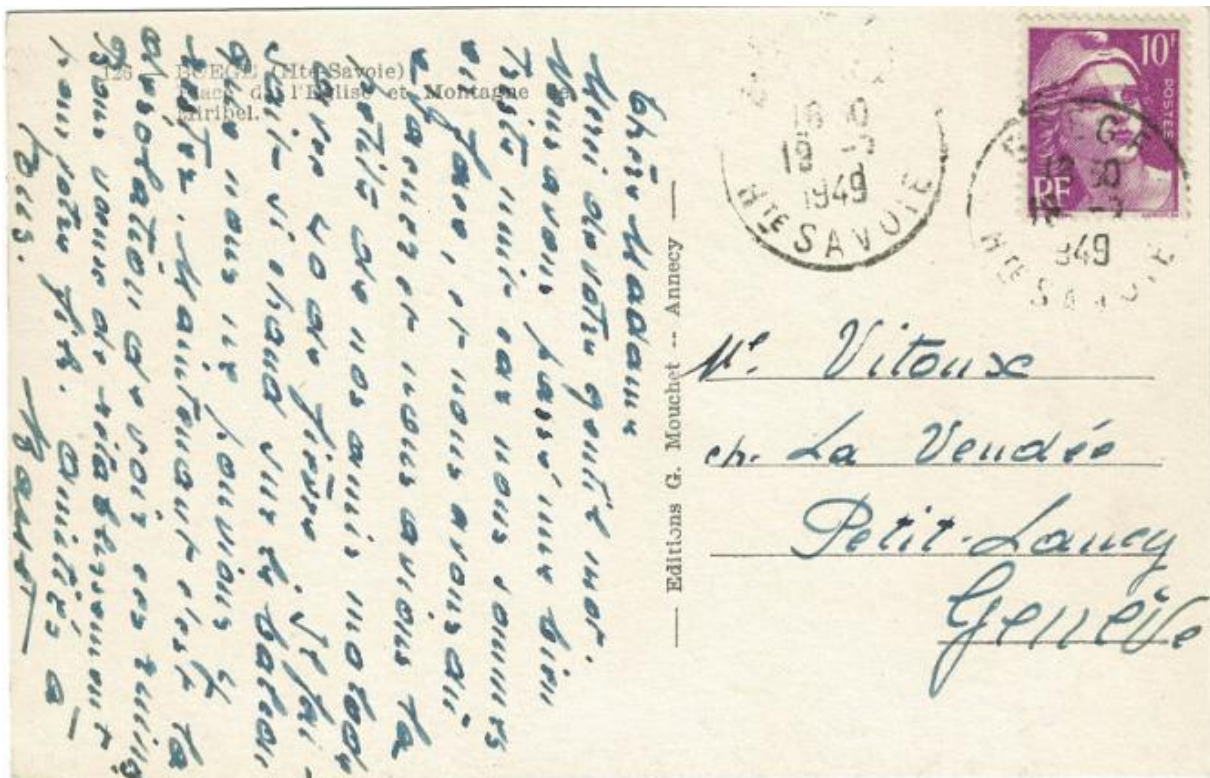 126 - BOEGE (Hte-Savoie)
Place de l'Eglise et Montagne de
Miribel.
Chère Madame
Merci de votre gentil mot.
Nous avons passé une bien
triste nuit car nous sommes
en face, et nous avons
et nous avions la
petite de nos amis
avec 40 de fièvre. Il fai-
sait si chaud sur le balcon
que nous ne pouvions y
rester. Maintenant c'est la
désolation de voir ces ruines
Bons vœux de rétablissement
pour votre fils. Amitiés à
tous.
— Editions G. Mouchet -- Annecy —
10F
POSTES
RF
18 30
19 -
1949
HTE SAVOIE
BOEGE
18 30
1949
HTE SAVOIE
Me. Vitoux
ch. La Vendée
Petit-Lancy
Genève